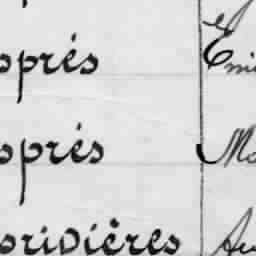 oprés Emi
oprés Ma
orivières Au